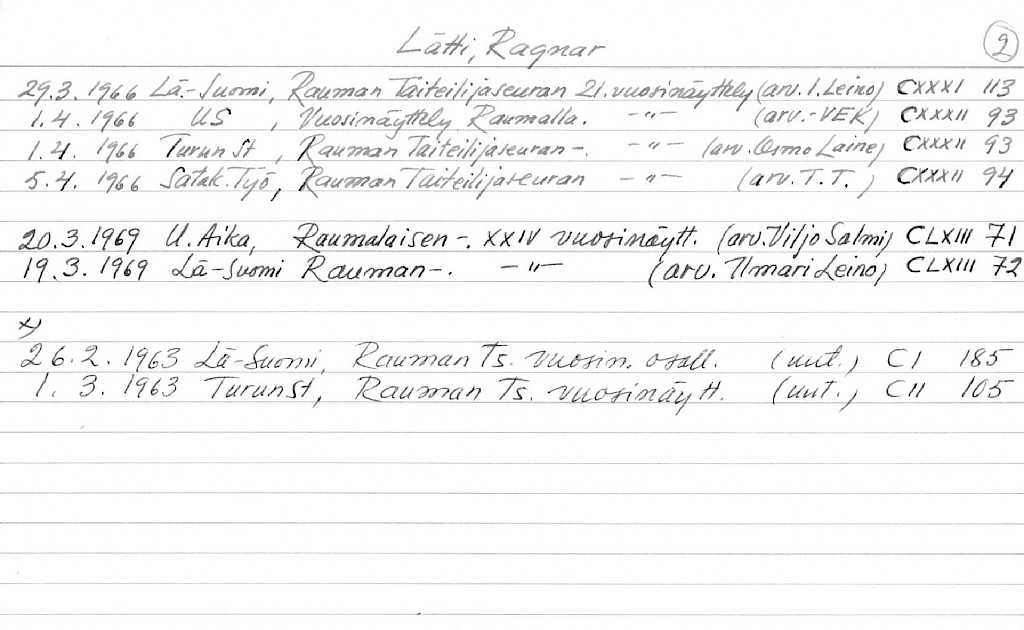 Lätti, Ragnar 2
29.3.1966 Lä-Suomi, Rauman Taiteilijaseuran 21. vuosinäyttely (arv. I. Leino) CXXXI 113
1.4.1966 US, Vuosinäyttely Raumalla. -"- (arv.-VEK) CXXXII 93
1.4.1966 Turun St, Rauman Taiteilijaseuran-. -"- (arv. Osmo Laine) CXXXII 93
5.4.1966 Satak. Työ, Rauman Taiteilijaseuran -"- (arv. T.T.) CXXXII 94
20.3.1969 U. Aika, Raumalaisen-. XXIV vuosinäytt. (arv. Viljo Salmi) CLXIII 71
19.3.1969 Lä-Suomi Rauman-. -"- (arv. Ilmari Leino) CLXIII 72
x)
26.2.1963 Lä-Suomi, Rauman Ts. vuosin. osall. (uut.) CI 185
1.3.1963 Turun St, Rauman Ts. vuosinäytt. (uut.) CII 105